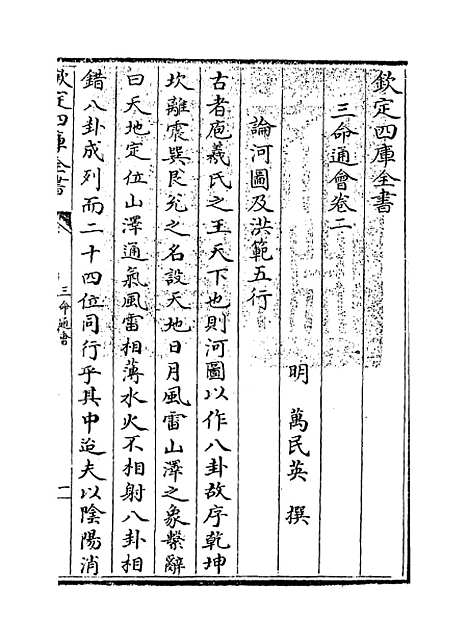 欽定四庫全書
三命通會卷二
明 萬民英 撰
論河圖及洪範五行
古者庖羲氏之王天下也則河圖以作八卦故序乾坤
坎離震巽艮兊之名設天地日月風雷山澤之象繫辭
曰天地定位山澤通氣風雷相薄水火不相射八卦相
錯八卦成列而二十四位同行乎其中迨夫以陰陽消
欽定四庫全書
三命通會